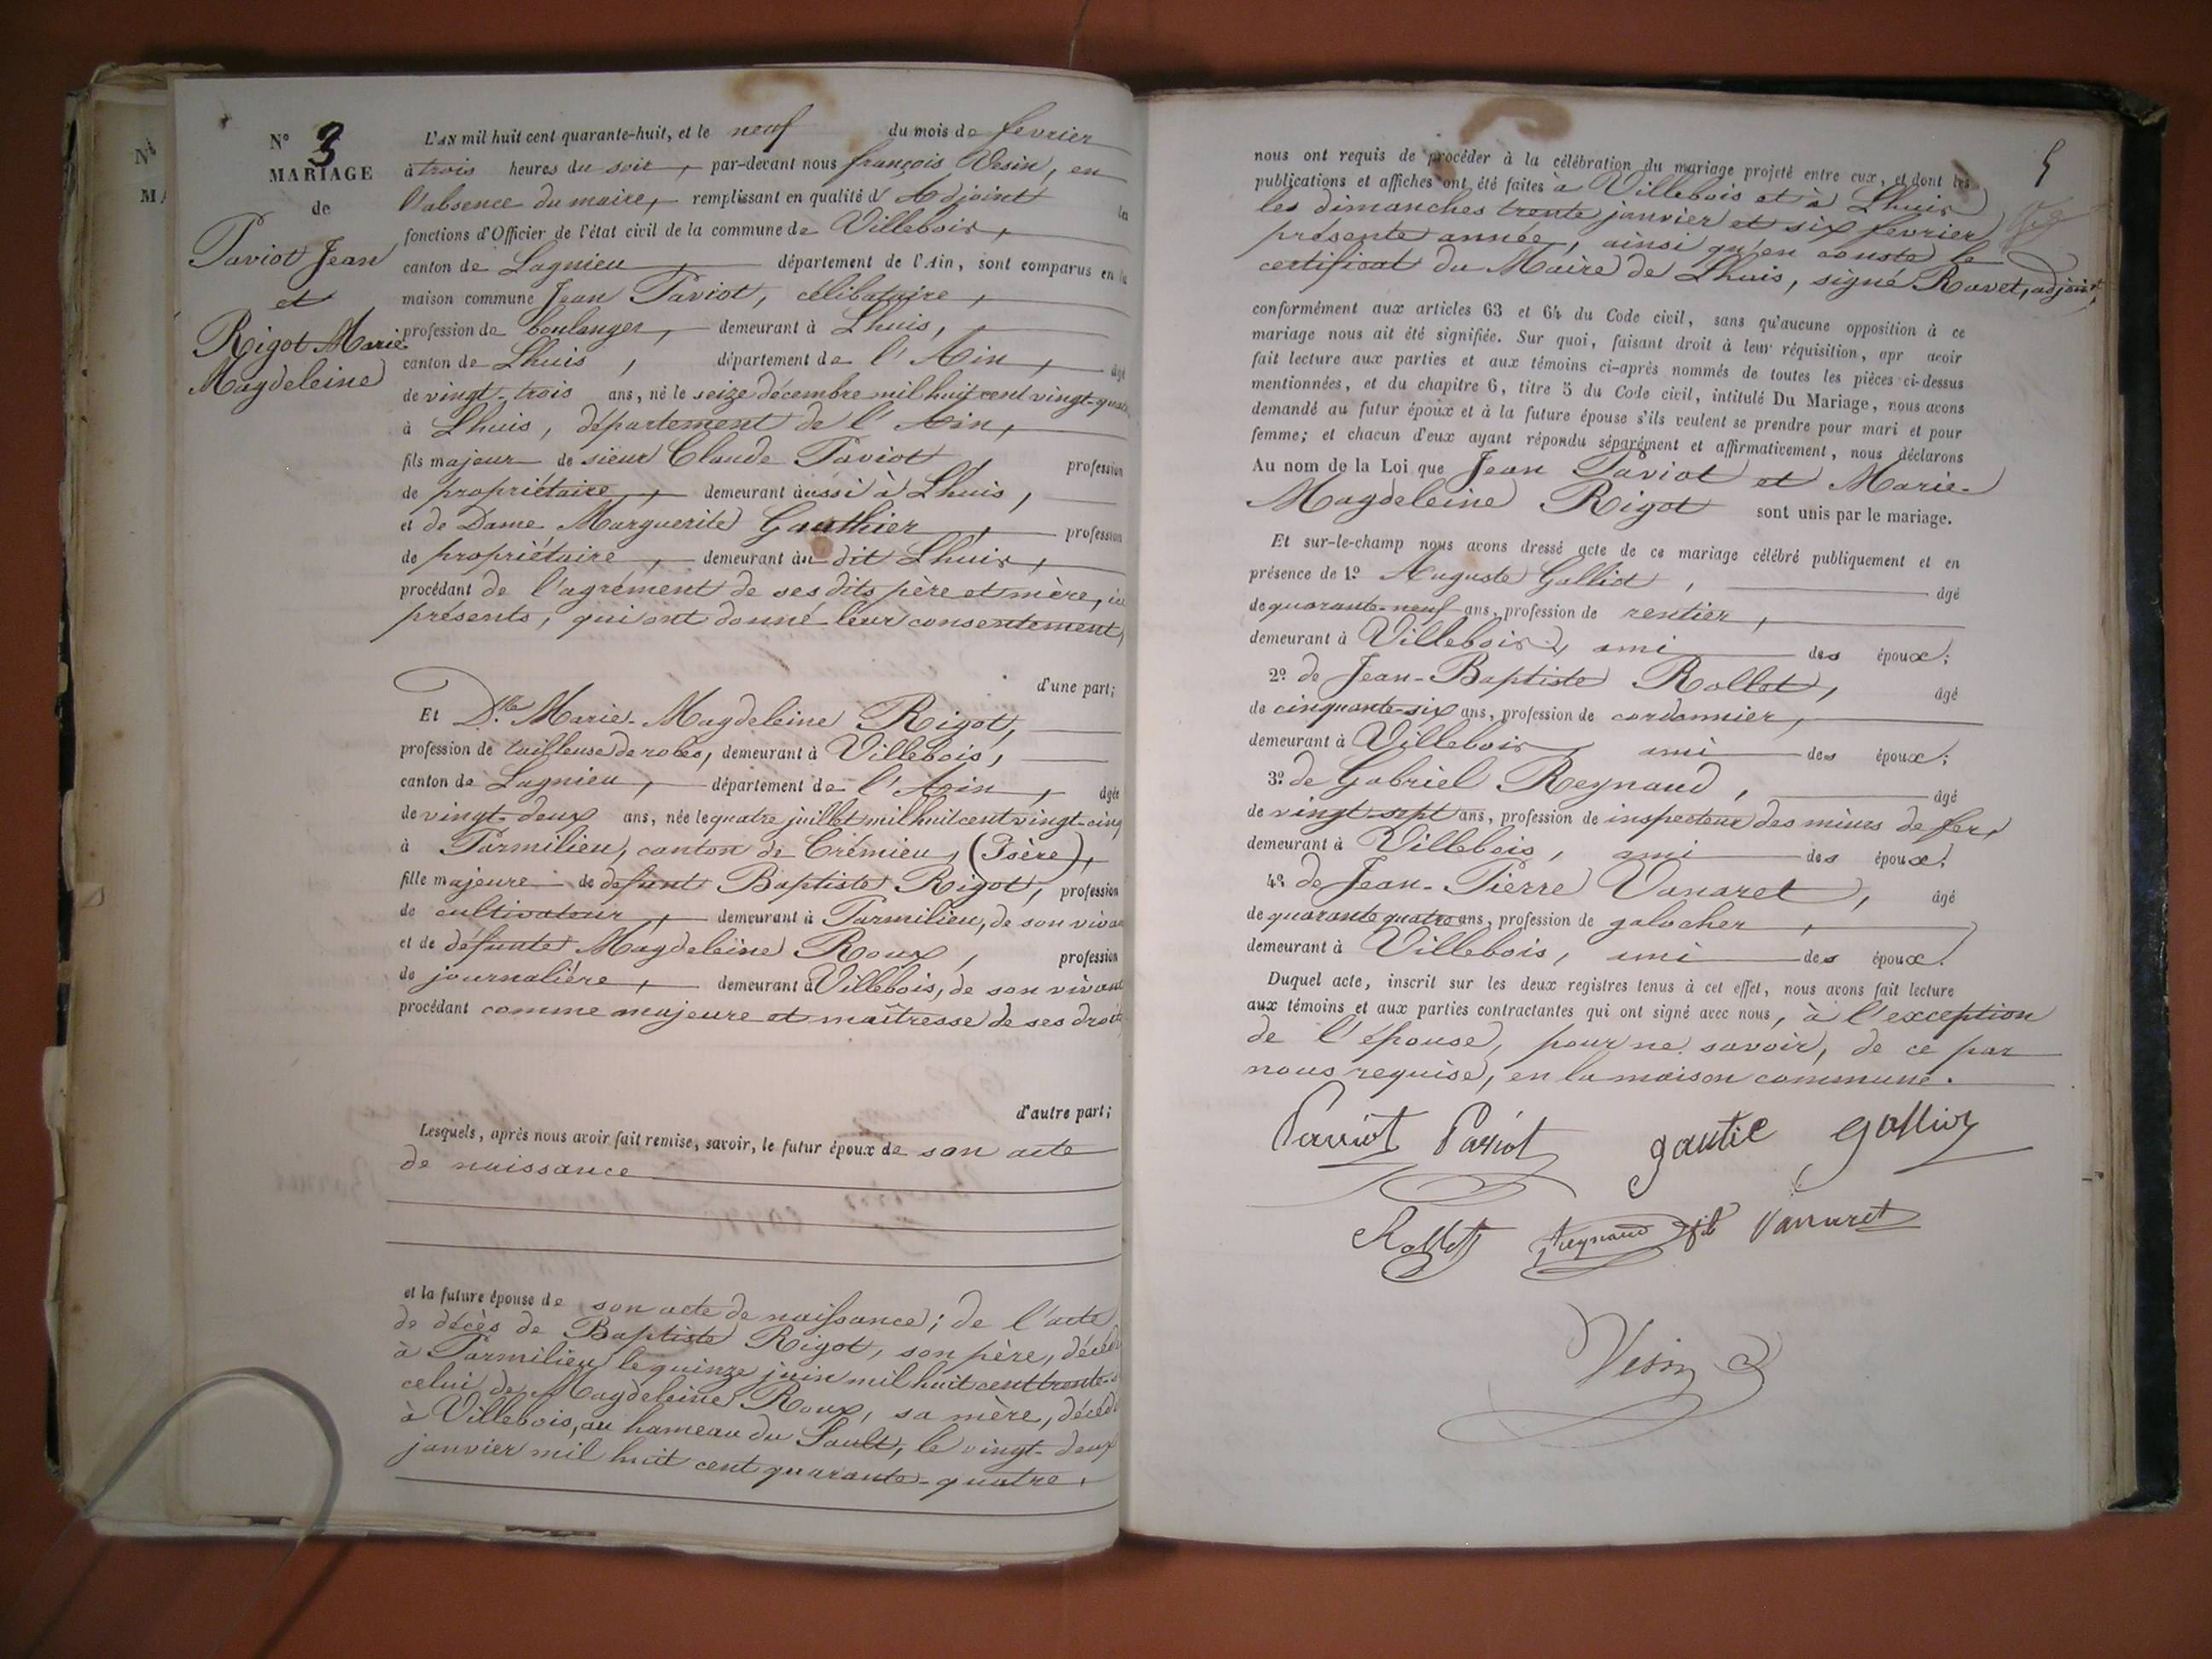 N° 3
MARIAGE
de
Paviot Jean
et
Rigot Marie
Magdeleine
L'AN mil huit cent quarante-huit, et le neuf du mois de fevrier
à trois heures du soir, par-devant nous françois Vesin, en
l'absence du maire, remplissant en qualité d'Adjoint les
fonctions d'Officier de l'état civil de la commune de Villebois,
canton de Lagnieu, département de l'Ain, sont comparus en la
maison commune Jean Paviot, célibataire,
profession de boulanger, demeurant à Lhuis,
canton de Lhuis, département de l'Ain, âgé
de vingt-trois ans, né le seize décembre mil huit cent vingt-quatre
à Lhuis, département de l'Ain,
fils majeur de sieur Claude Paviot, profession
de propriétaire, demeurant aussi à Lhuis,
et de Dame Marguerite Gauthier, profession
de propriétaire, demeurant au dit Lhuis,
procédant de l'agrément de ses dits père et mère, ici
présents, qui ont donné leur consentement,
d'une part;
Et Dlle Marie-Magdeleine Rigot,
profession de tailleuse de robes, demeurant à Villebois,
canton de Lagnieu, département de l'Ain, âgée
de vingt-deux ans, née le quatre juillet mil huit cent vingt-cinq
à Parmilieu, canton de Crémieu, (Isère),
fille majeure de defunt Baptiste Rigot, profession
de cultivateur, demeurant à Parmilieu, de son vivant
et de défunte Magdeleine Roux, profession
de journalière, demeurant à Villebois, de son vivant
procédant comme majeure et maîtresse de ses droits
d'autre part;
Lesquels, après nous avoir fait remise, savoir, le futur époux de son acte
de naissance
et la future épouse de son acte de naissance; de l'acte
de décès de Baptiste Rigot, son père, décédé
à Parmilieu le quinze juin mil huit cent trente-
celui de Magdeleine Roux, sa mère, décédée
à Villebois, au hameau du Sault, le vingt-deux
janvier mil huit cent quarante-quatre,
5
nous ont requis de procéder à la célébration du mariage projeté entre eux, et dont les
publications et affiches ont été faites à Villebois et à Lhuis
les dimanches trente janvier et six fevrier
présente année, ainsi qu'en conste le
certificat du Maire de Lhuis, signé Ravet, adjoint,
conformément aux articles 63 et 64 du Code civil, sans qu'aucune opposition à ce
mariage nous ait été signifiée. Sur quoi, faisant droit à leur réquisition, apr avoir
fait lecture aux parties et aux témoins ci-après nommés de toutes les pièces ci-dessus
mentionnées, et du chapitre 6, titre 5 du Code civil, intitulé Du Mariage, nous avons
demandé au futur époux et à la future épouse s'ils veulent se prendre pour mari et pour
femme; et chacun d'eux ayant répondu séparément et affirmativement, nous déclarons
Au nom de la Loi que Jean Paviot et Marie-
Magdeleine Rigot sont unis par le mariage.
Et sur-le-champ nous avons dressé acte de ce mariage célébré publiquement et en
présence de 1° Auguste Galliot, âgé
de quarante-neuf ans, profession de rentier,
demeurant à Villebois, ami des époux;
2° de Jean-Baptiste Rollet, âgé
de cinquante-six ans, profession de cordonnier,
demeurant à Villebois, ami des époux;
3° de Gabriel Reynaud, âgé
de vingt-sept ans, profession de inspecteur des mines de fer,
demeurant à Villebois, ami des époux;
4° de Jean-Pierre Vanaret, âgé
de quarante quatre ans, profession de galocher,
demeurant à Villebois, ami des époux.
Duquel acte, inscrit sur les deux registres tenus à cet effet, nous avons fait lecture
aux témoins et aux parties contractantes qui ont signé avec nous, à l'exception
de l'épouse, pour ne savoir, de ce par
nous requise, en la maison commune.
Paviot Paviot gautié galliot
Rollet Reynaud fils Vanaret
Vesin